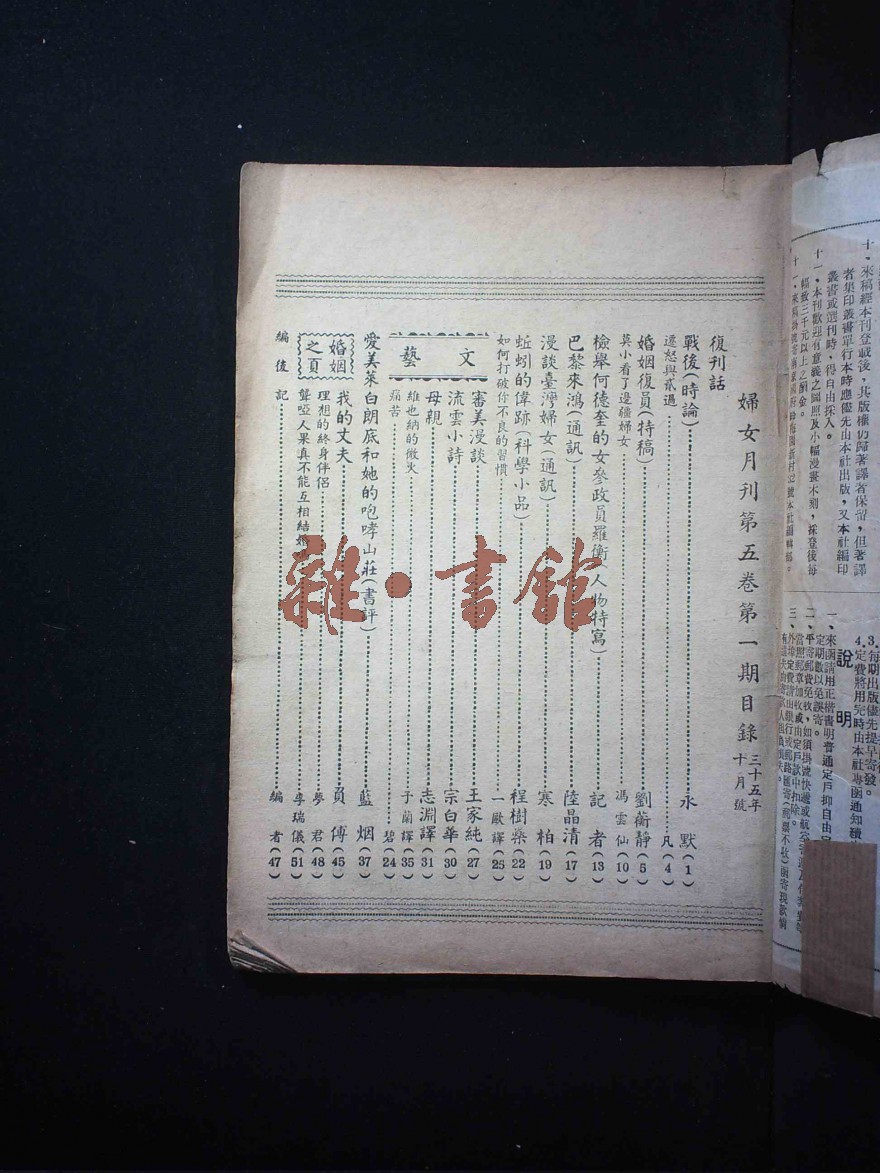 婦女月刊第五卷第一期目錄 三十五年十月號
復刊話
戰後(時論)永默(1)
遷怒與貳過凡(4)
婚姻復員(特稿)劉衡靜(5)
莫小看了邊疆婦女馮雲仙(10)
檢舉何德奎的女參政員羅衡(人物特寫)記者(13)
巴黎來鴻(通訊)陸晶清(17)
漫談臺灣婦女(通訊)寒柏(19)
蚯蚓的偉跡(科學小品)程樹榮(22)
如何打破你不良的習慣一歐譯(25)
文藝
審美漫談王家純(27)
流雲小詩宗白華(30)
母親志淵譯(31)
維也納的微火于蘭譯(35)
痛苦碧(24)
愛美萊白朗底和她的咆哮山莊(書評)藍烟(37)
婚姻之頁
我的丈夫貝傅(45)
理想的終身伴侶夢君(48)
聾啞人果真不能互相結婚李瑞儀(51)
編後記編者(47)
雜·書館
十、來稿經本刊登載後，其版權仍歸著譯者保留，但著譯
者集印叢書單行本時應儘先由本社出版，又本社編印
叢書或選刊時，得自由採入。
十一、本刊歡迎有意義之圖照及小幅漫畫木刻，採登後每
幅致三千元以上之酬金。
3.每期出版儘先提早寄發。
4.定費將用完時由本社專函通知續
說明
一、來函請用正楷書明普通定戶抑自由定
定期數以免誤寄。
二、平寄郵費免收，如須掛號快遞或航空寄